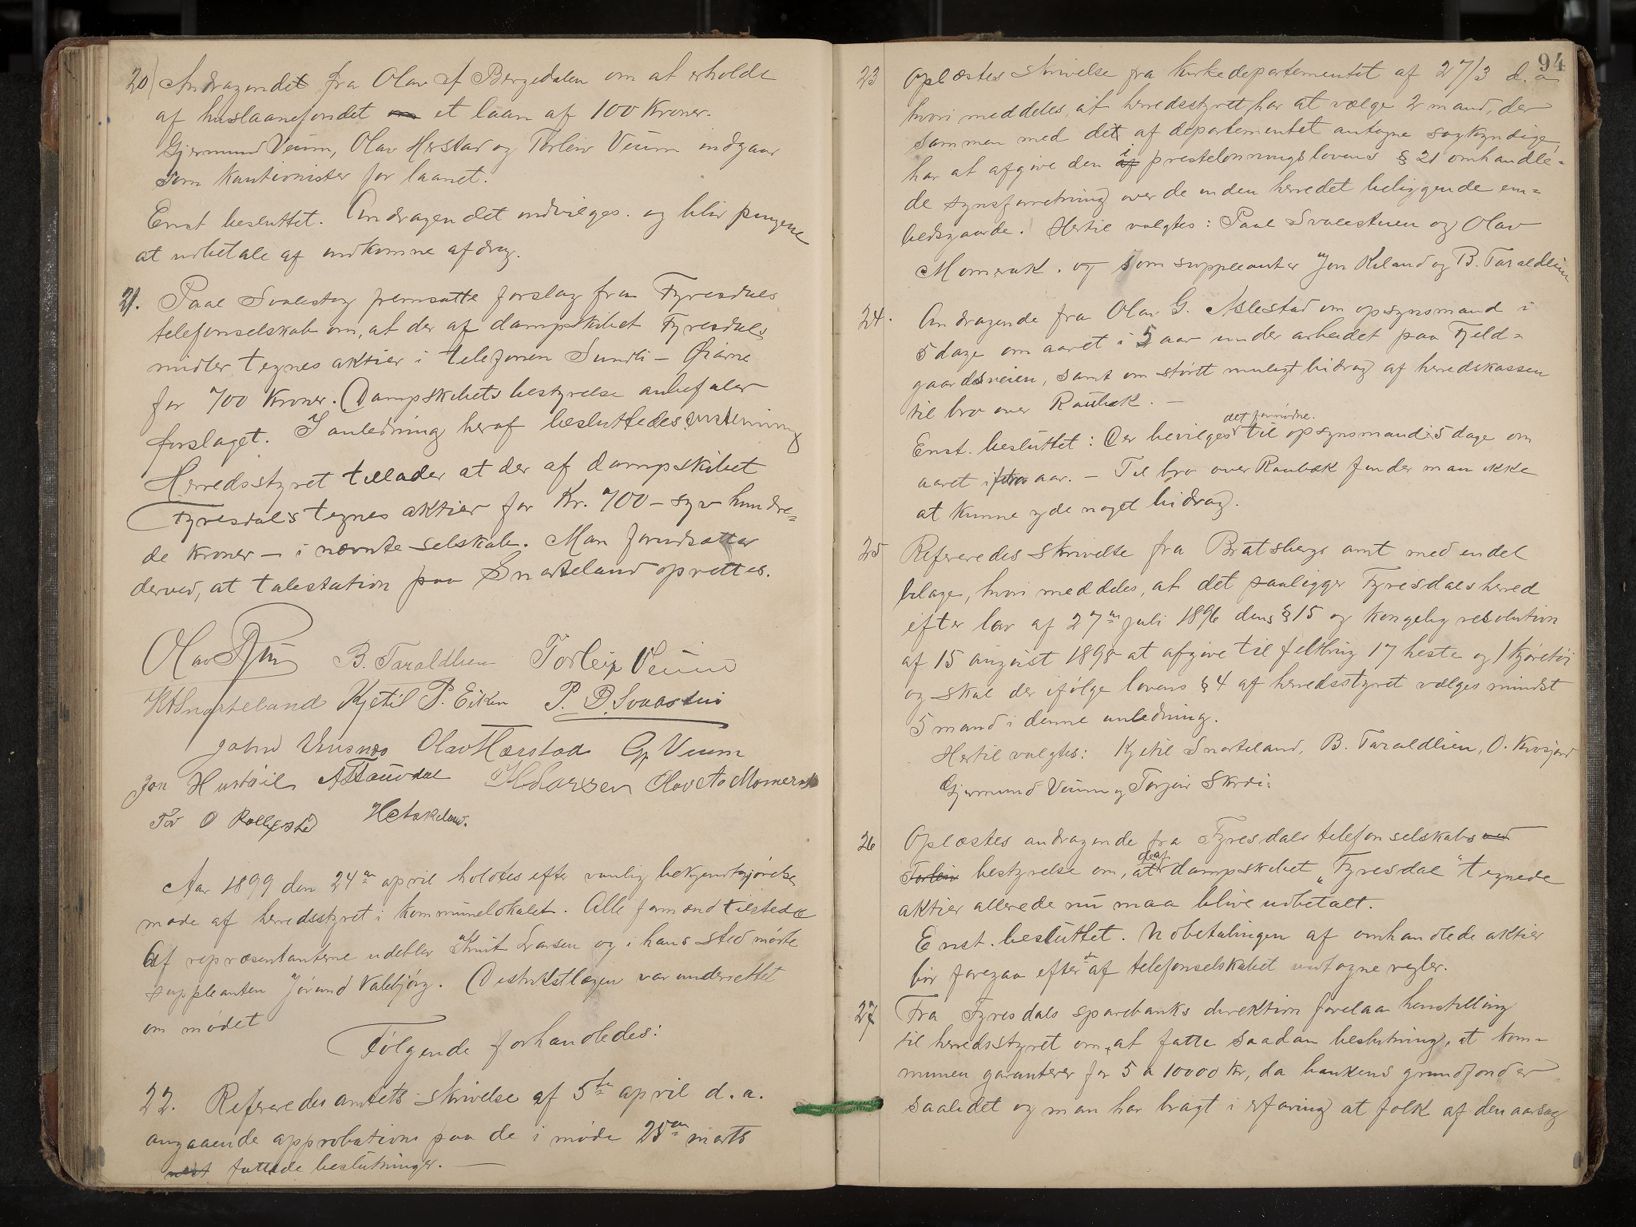 20) Andragendet fra Olav A Bergedalen om at erholde
af huslaanefondet et laan af 100 Kroner.
Gjermund Veum, Olav Herstad og Torleiv Veum indgaar
som kautionister for laanet.
Enst besluttet. Andragendet indvilges. og blir pengene
at udbetale af indkomne afdrag.
21. Paal Svalestog fremsatte forslag fra Fyresdals
telefonselskab om, at der af dampskibet Fyresdals
midler tegnes aktier i telefonen Sundli - Øiarne
for 700 Kroner. Dampskibets bestyrelse anbefaler
forslaget. I anledning heraf besluttedes
Herredsstyret tillader at der af dampskibet
Fyresdal's tegnes aktier for Kr. 700 - syv hundre=
de kroner - i nævnte selskab. Man forudsætter
derved, at talestation paa Snarteland oprettes.
B. Taraldlien Torleiv Veum
Snarteland Kjetil P. Eiken
Olav Hærstad G Veum
Jon
Tor O
Aar 1899 den 24de april holdtes efter vanlig bekjendtgjørelse
møde af herredsstyret i kommunelokalet. Alle formænd tilstede
Af repræsentanterne udeblev Knut Larsen og i hans sted mødte
suppleanten Jørund Valebjørg. Distriktslægen var underrettet
om mødet
Følgende forhandledes:
22. Referedes amtets skrivelse af 5te april d. a.
angaaende approbation paa de i møde 25de marts
fattede beslutninger. -
94
23 Oplæstes skrivelse fra kirkedepartementet af 27/3 d. a
hvori meddeles, at herredsstyret har at vælge 2 mænd, der
sammen med det af departementet antagne sagkyndige,
har at afgive den i prestelønningslovens § 21 omhandle=
de synsforretning over de inden herredet beliggende em=
bedsgaarde. Hertil valgtes: Paal Svalestuen og Olav
Momrak. og som suppleanter Jon Kiland og B. Taraldlien
24. Andragende fra Olav G. Aslestad om opsynsmand i
5 dage om aaret i 5 aar under arbeidet paa Fjeld=
gaardsveien, samt om størst muligt bidrag af herredskassen
til bro over Raubæk. -
Enst. besluttet: Der bevilges det fornødne til opsynsmand i 5 dage om
aaret i aar. - Til bro over Raubæk finder man ikke
at kunne yde noget bidrag.
25 Referedes skrivelse fra Bratsbergs amt med endel
bilage, hvori meddeles, at det paaligger Fyresdals herred
efter lov af 27de juli 1896 dens § 15 og kongelig resolution
af 15 august 1898 at afgive til feltbrug 17 heste og 1 kjøretøi
og skal der ifølge lovens § 4 af herredsstyret vælges mindst
5 mand i denne anledning.
Hertil valgtes: Kjetil Snarteland, B. Taraldlien, O.
Gjermund Veum og Torjeir
26 Oplæstes andragende fra Fyresdals telefonselskabs
bestyrelse om, at de af dampskibet "Fyresdal" tegnede
aktier allerede nu maa blive udbetalt.
Enst. besluttet. Udbetalingen af omhandlede aktier
bør foregaa efter de af telefonselskabet vedtagne regler.
27 Fra Fyresdals sparebanks direktion forelaa henstilling
til herredsstyret om, at fatte saadan beslutning, at kom=
munen garanterer for 5 a 10000 kr, da bankens grundfond er
saa lidet og man har bragt i erfaring at folk af den aarsag